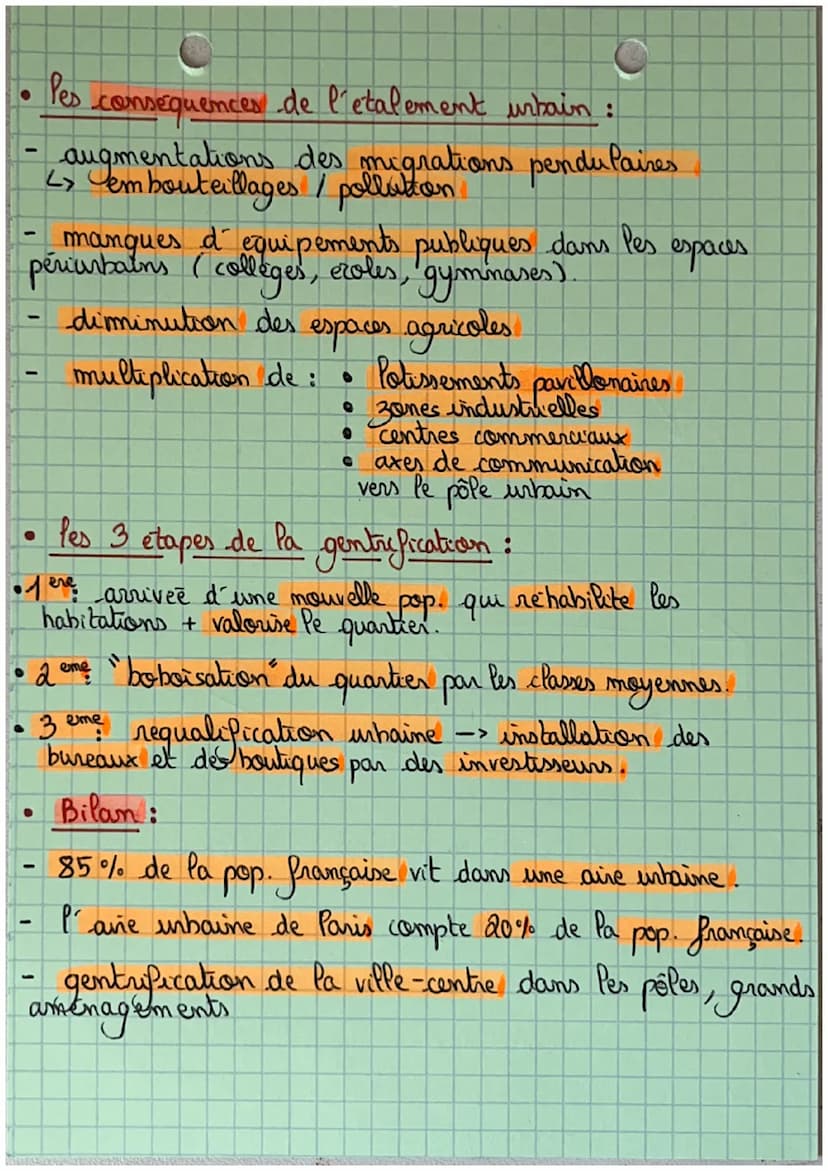 • les conséquences de l'etalement urbain :
- augmentations des migrations pendulaires
↳ embouteillages / pollution
- manques d'equipements publiques dans les espaces
périurbains (collèges, ecoles, gymnases).
- diminution des espaces agricoles
- multiplication de : • lotissements pavillonaires
• zones industrielles
• centres commerciaux
• axes de communication
vers le pôle urbain
• les 3 étapes de la gentrification :
• 1ere: arrivée d'une nouvelle pop. qui réhabilite les
habitations + valorise le quartier.
• 2eme: "boboïsation" du quartier par les classes moyennes.
• 3eme: requalification urbaine -> installation des
bureaux et des boutiques par des investisseurs.
• Bilan :
- 85% de la pop. française vit dans une aire urbaine.
- l'aire urbaine de Paris compte 20% de la pop. française.
- gentrification de la ville-centre dans les pôles, grands
aménagements